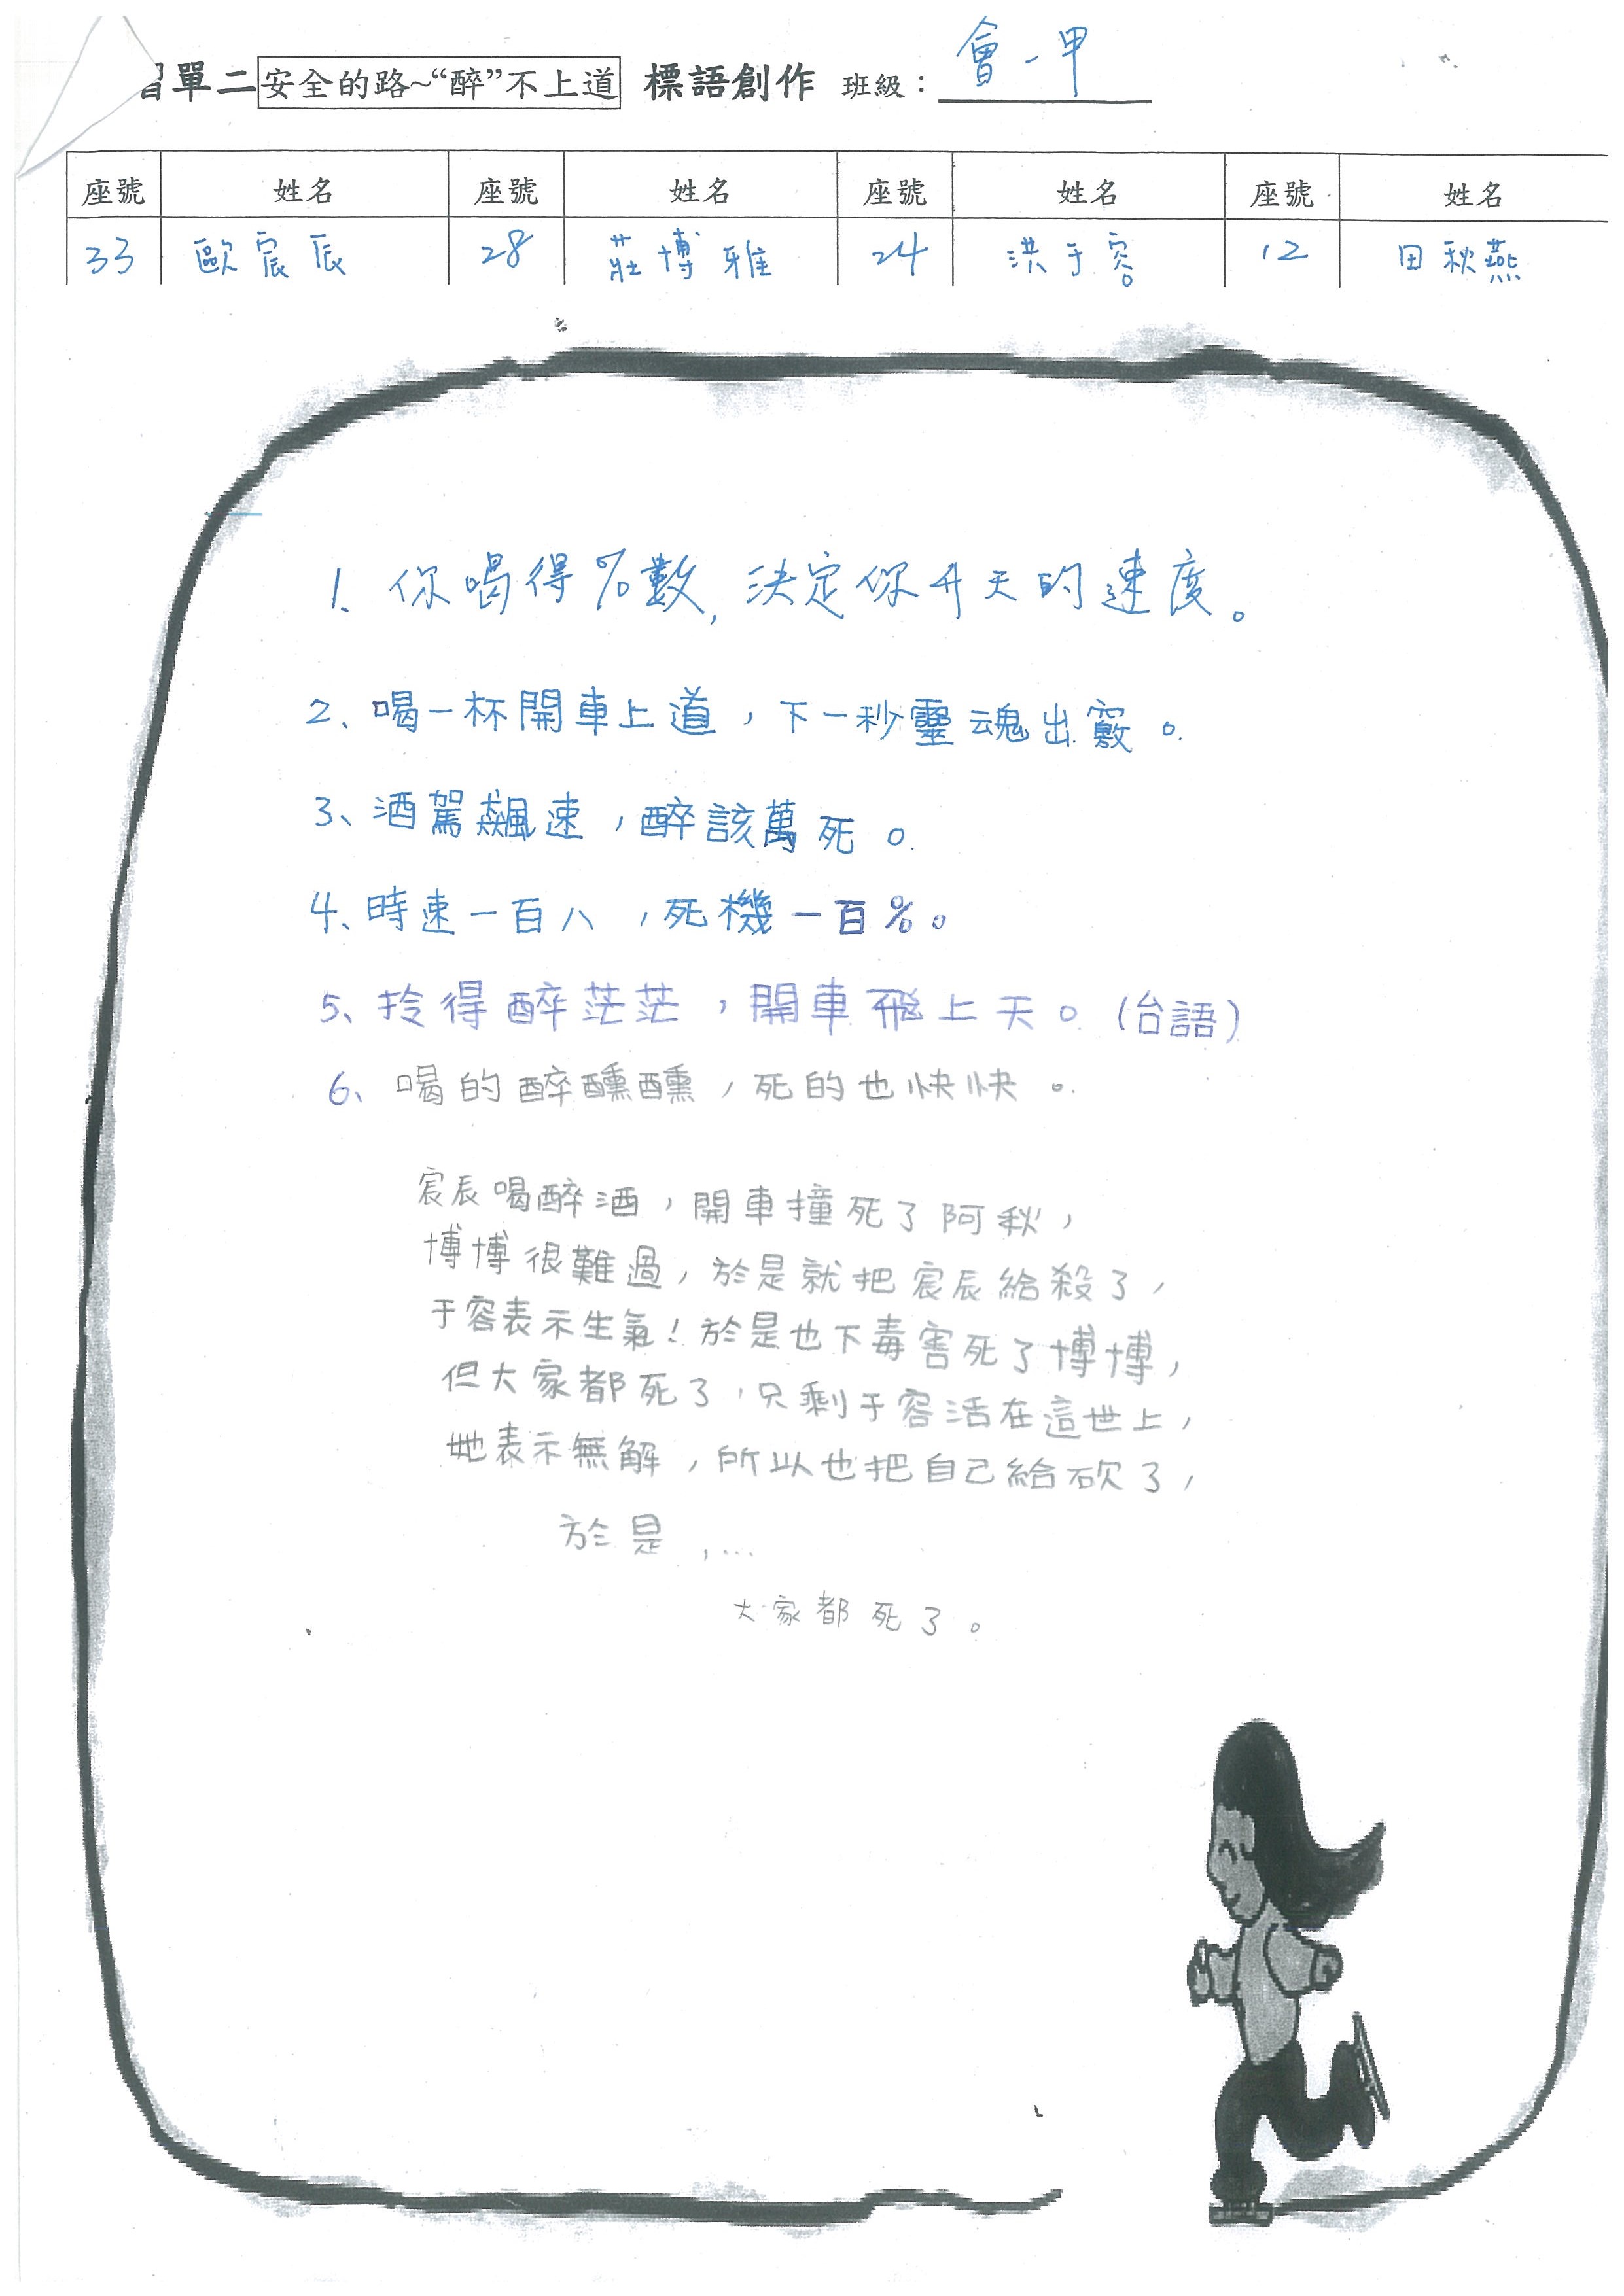 習單二 安全的路~“醉”不上道 標語創作 班級：會一甲
座號 姓名 座號 姓名 座號 姓名 座號 姓名
33 歐宸辰 28 莊博雅 24 洪于容 12 田秋燕
1. 你喝得%數, 決定你升天的速度。
2、喝一杯開車上道，下一秒靈魂出竅。
3、酒駕飆速，醉該萬死。
4、時速一百八，死機一百%。
5、拎得醉茫茫，開車飛上天。(台語)
6、喝的醉醺醺，死的也快快。
宸辰喝醉酒，開車撞死了阿秋，
博博很難過，於是就把宸辰給殺了，
于容表示生氣！於是也下毒害死了博博，
但大家都死了，只剩于容活在這世上，
她表示無解，所以也把自己給砍了，
於是，…
大家都死了。